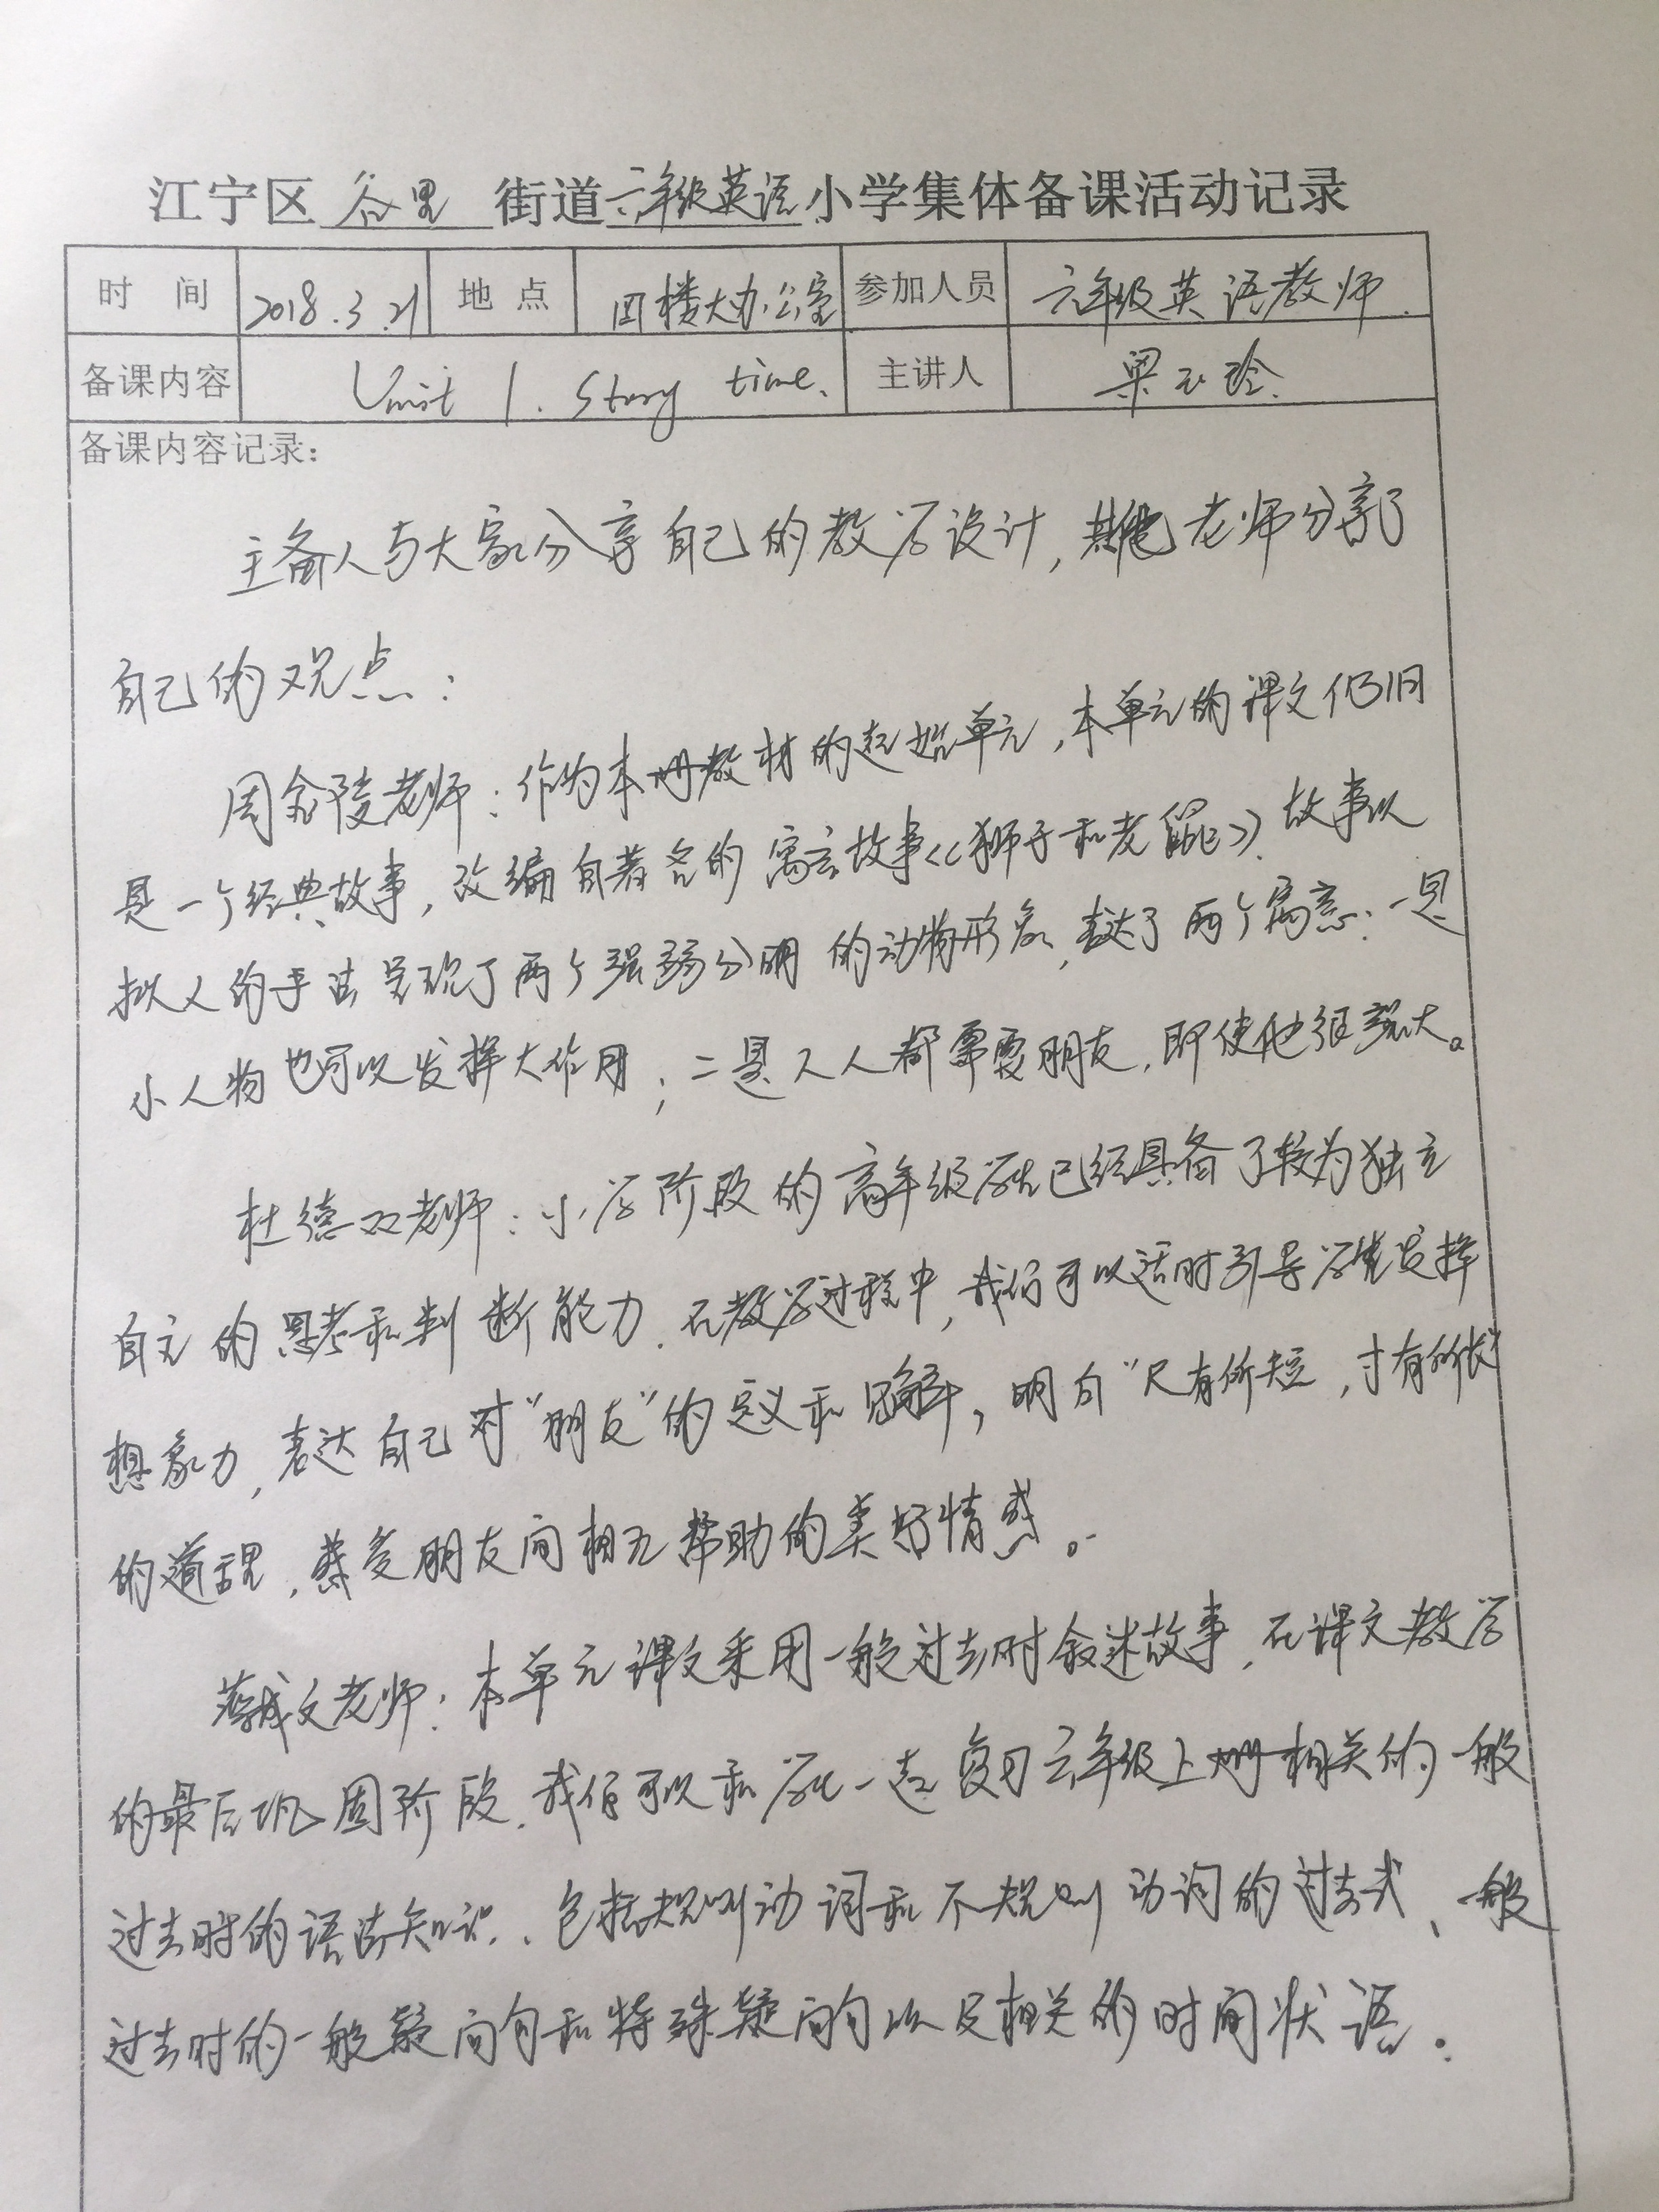 江宁区 谷里 街道 六年级英语 小学集体备课活动记录
时 间 2018.3.21 地 点 四楼大办公室 参加人员 六年级英语教师.
备课内容 Unit 1. Story time. 主讲人 梁玲
备课内容记录：
主备人与大家分享自己的教学设计，其他老师分享了
自己的观点：
周金陵老师：作为本册教材的起始单元，本单元的课文仍旧
是一个经典故事，改编自著名的寓言故事《狮子和老鼠》.故事以
拟人的手法呈现了两个强弱分明的动物形象，表达了两个寓意：一是
小人物也可以发挥大作用；二是人人都需要朋友，即使他很强大。
杜德双老师：小学阶段的高年级学生已经具备了较为独立
自主的思考和判断能力.在教学过程中，我们可以适时引导学生发挥
想象力，表达自己对“朋友”的定义和见解，明白“尺有所短，寸有所长”
的道理，感受朋友间相互帮助的美好情感。
蔡成文老师：本单元课文采用一般过去时叙述故事，在课文教学
的最后巩固阶段.我们可以和学生一起复习六年级上册相关的一般
过去时的语法知识、包括规则动词和不规则动词的过去式、一般
过去时的一般疑问句和特殊疑问句以及相关的时间状语.